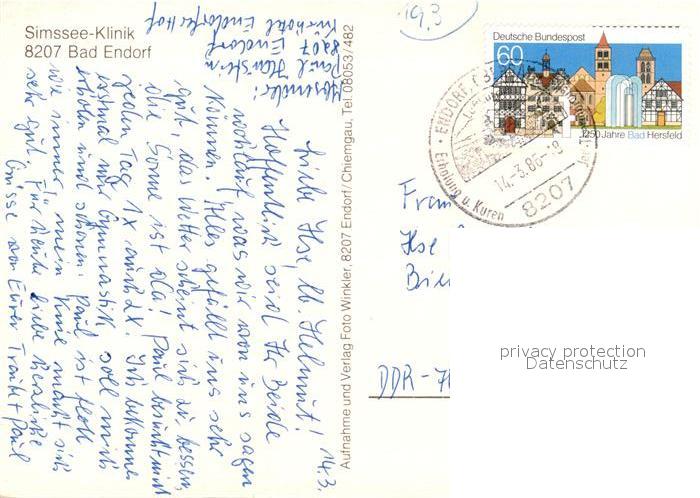 Simssee-Klinik
8207 Bad Endorf
Absender:
Paul
8207 Endorf
Kurhotel Endorfer Hof
14.3.
Liebe Ilse, lb. Helmut!
Hoffentlich seid Ihr Beide
wohlauf was wir von uns sagen
können. Alles gefällt uns sehr
gut, das Wetter scheint sich zu bessern,
die Sonne ist da! Paul besucht mich
jeden Tag 1x auch 2x. Ich bekomme
erstmal nur Gymnastik soll mich
erholen und schonen. Paul ist flott
wie immer! mein Knie macht sich
sehr gut. Für heute liebe herzliche
Grüsse von Eurer Traudt + Paul
Aufnahme und Verlag Foto Winkler, 8207 Endorf/Chiemgau, Tel. 08053/482
19.3
Deutsche Bundespost
60
1250 Jahre Bad Hersfeld
ENDORF
14.-3.86.-8
8207
Erholung u. Kuren
Ilse
DDR-
privacy protection
Datenschutz